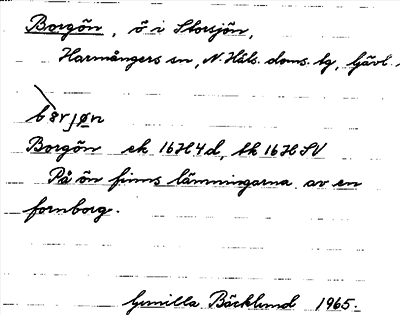 Borgön, ö i Storsjön,
Harmångers sn, N. Häls. doms. tg, Gävl.
Borgön ek 16H4d, tk 16H SV
På ön finns lämningarna av en
fornborg.
Gunilla Bäcklund 1965.